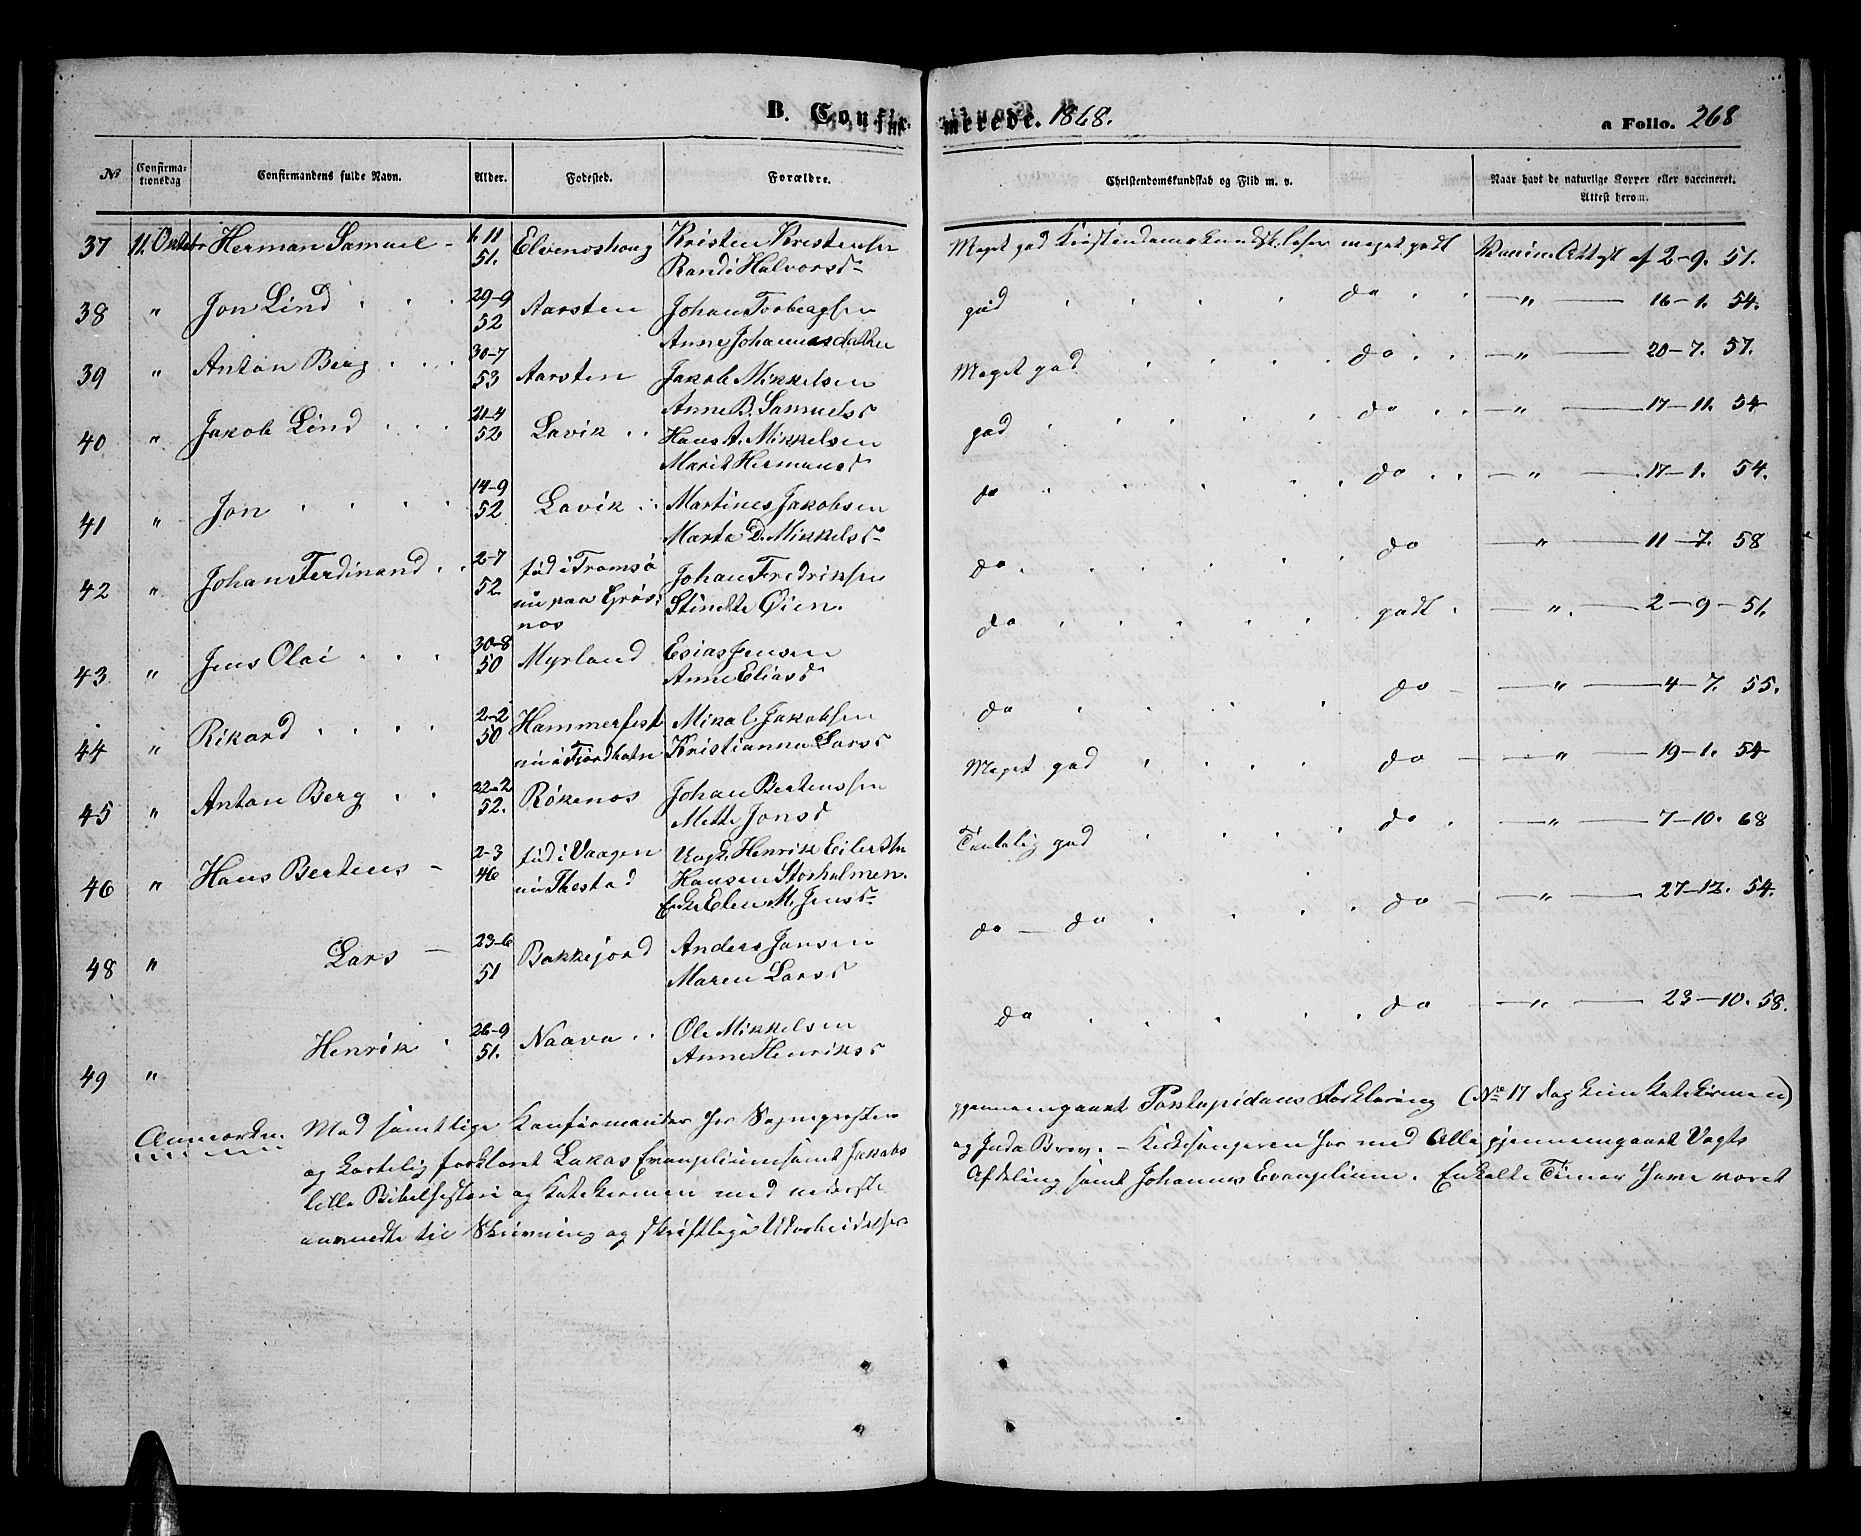 B. Confir-
merede. 1868.
a Folio. 268
No
Confirma-
tionsdag
Confirmandens fulde Navn.
Alder.
Fødested.
Forældre.
Christendomskundskab og Flid m. v.
Naar havt de naturlige Kopper eller vaccineret.
Attest herom.
37 11. Herman Samuel - 11 51. Elvenoshoug Kristen Kristensen Meget god Kristendomskundsk. læser meget godt Attest af 2-9. 51.
Randi Halvorsd
38 " Jon Lind 29-9 52 Aarsten Johan Torbergsen god do " 16-1. 54.
Anne Johannesdatter
39 " Anton Berg 30-7 53 Aarsten Jakob Mikkelsen Meget god do " 20-7. 57.
Anne B. Samuelsd
40 " Jakob Lind 21-4 52 Lavik Hans A. Mikkelsen god do " 17-11. 54
Marit Hermansd
41 " Jon 14-9 52 Lavik Martines Jakobsen do do " 17-1. 54.
Marta D. Mikkelsd
42 " Johan Ferdinand 2-7 52 fød i Tromsø Johan Fredriksen do do " 11-7. 58
nu paa Grøs- Stindte Øien.
nos
43 " Jens Olai 30-8 50 Myrland Esias Jensen do godt " 2-9-51.
Anne Eliasd
44 " Rikard 2-2 50 Hammerfest Mikal Jakobsen do do " 4-7. 55.
nu i Fjordbotn Kristianna Larsd
45 " Anton Berg 22-2 52. Røkenos Johan Bertenssen Meget god do " 19-1. 54
Mette Jonsd
46 " Hans Bertens - 2-3 46 fød i Vaagen Ungk. Henrik Eilertsen Temlelig god do " 7-10. 68
nu Thestad Hansen Storholmen.
Enke Elen M. Jensd
48 " Lars - 23-6 51 Bakkejord Anders Jansen do - do do " 27-12. 54.
Maren Larsd
49 " Henrik 26-9 51. Naava Ole Mikkelsen do do " 23-10. 58.
Anne Henriksd
Anmærkn. Med samtlige Konfirmander har Sognepræsten gjennemgaaet Pontoppidans Forklaring (No 17
og kortelig forklaret Lukas Evangelium samt Jakobs og Juda Brev. - Kirkesangeren har med Alle gjennemgaaet Vogts
lille Bibelhistorie og Katekismen med nederste Afdeling samt Johannes Evangelium. Enkelte Timer have været
anvendte til Skrivning og skriftlige Udarbeidelser